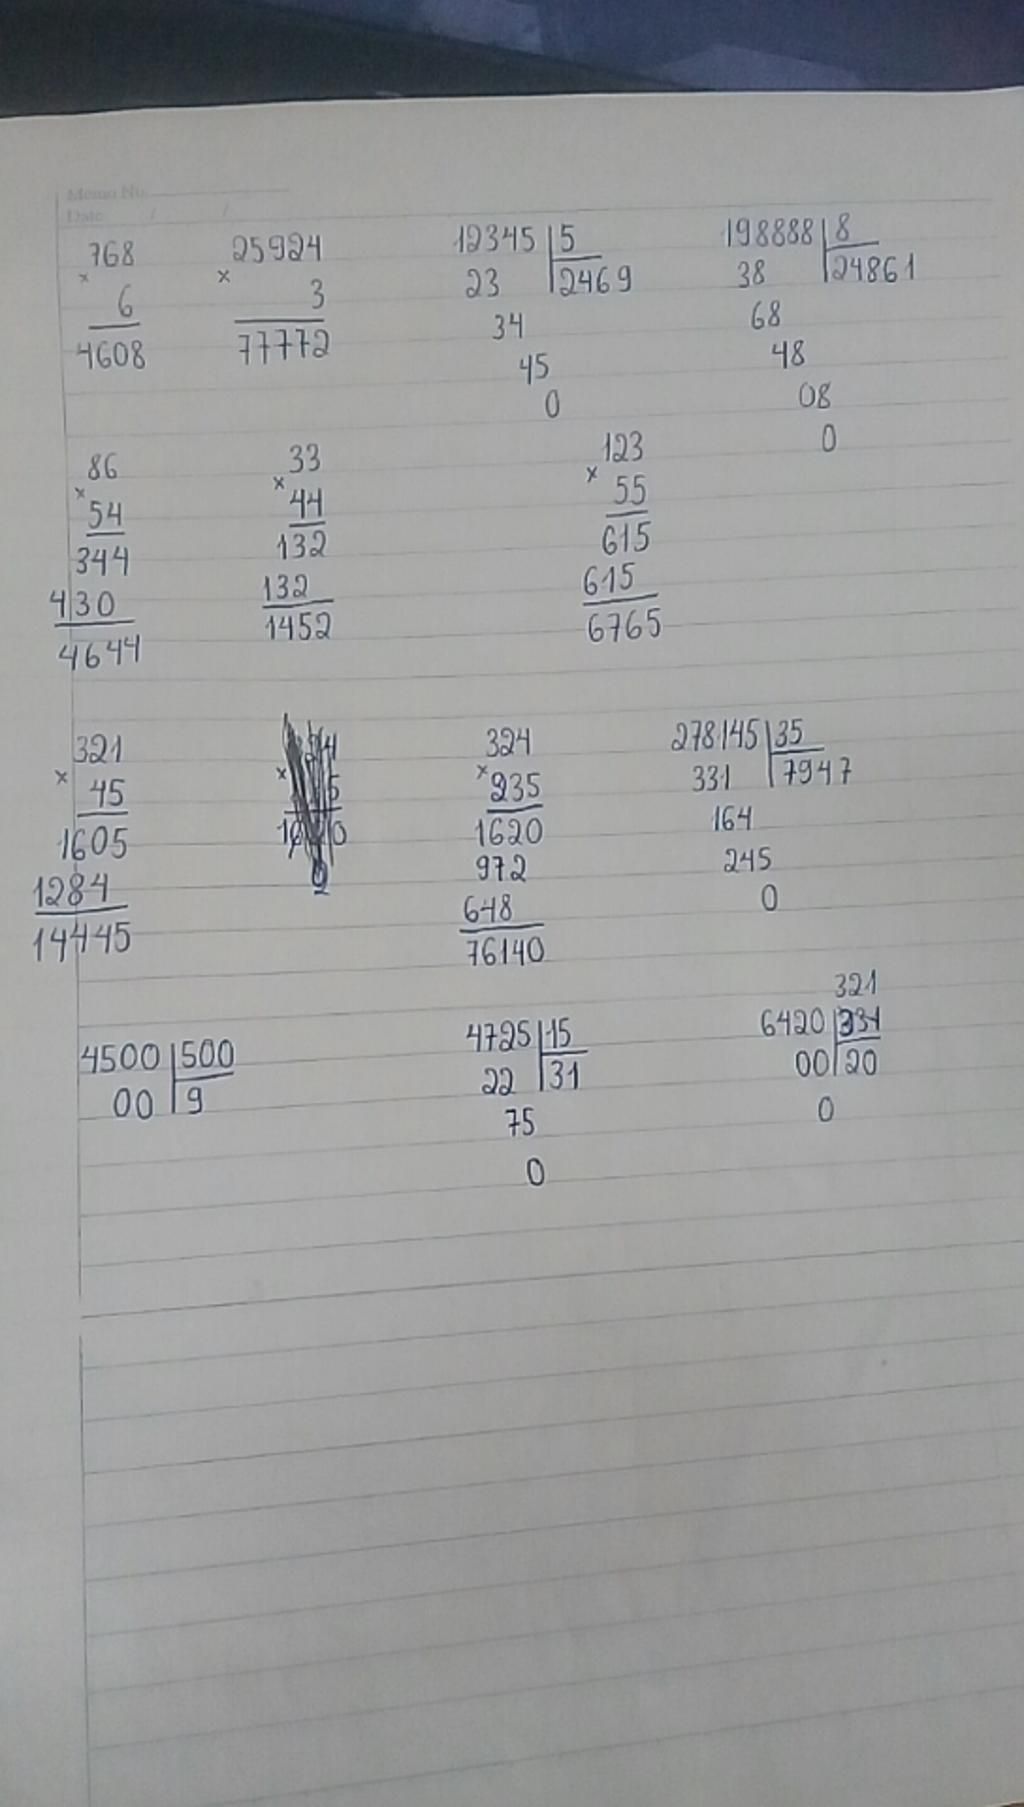 Memo No.
Date / /
768 × 6 4608
25924 × 3 77772
12345 5 2469 23 34 45 0
198888 8 24861 38 68 48 08 0
86 × 54 344 430 4644
33 × 44 132 132 1452
123 × 55 615 615 6765
321 × 45 1605 1284 14445
324 × 235 1620 972 648 76140
278145 35 7947 331 164 245 0
4500 500 9 00
4725 15 31 22 75 0
321
6420 20 00 0